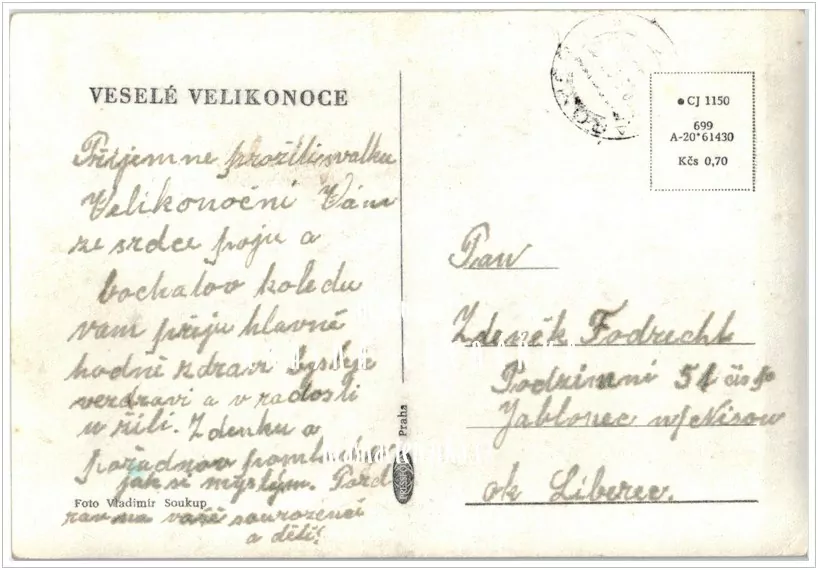 VESELÉ VELIKONOCE
Přijemne prožití svatku
Velikonoční Vám
ze srdce přeju a
bochatov koledu
vam přeju hlavně
hodně zdraví byste je
ve zdravi a v radosti
užili. Zdenku a
pořadnov pomlasku
jak si myslým. Pozd
rav na vaše sourozenci
a děti!
Foto Vladimír Soukup
Praha
CJ 1150
699
A-20*61430
Kčs 0,70
Pan
Zdeněk Fodrecht
Podzimní 51
Jablonec n/Nisou
ok Liberec.